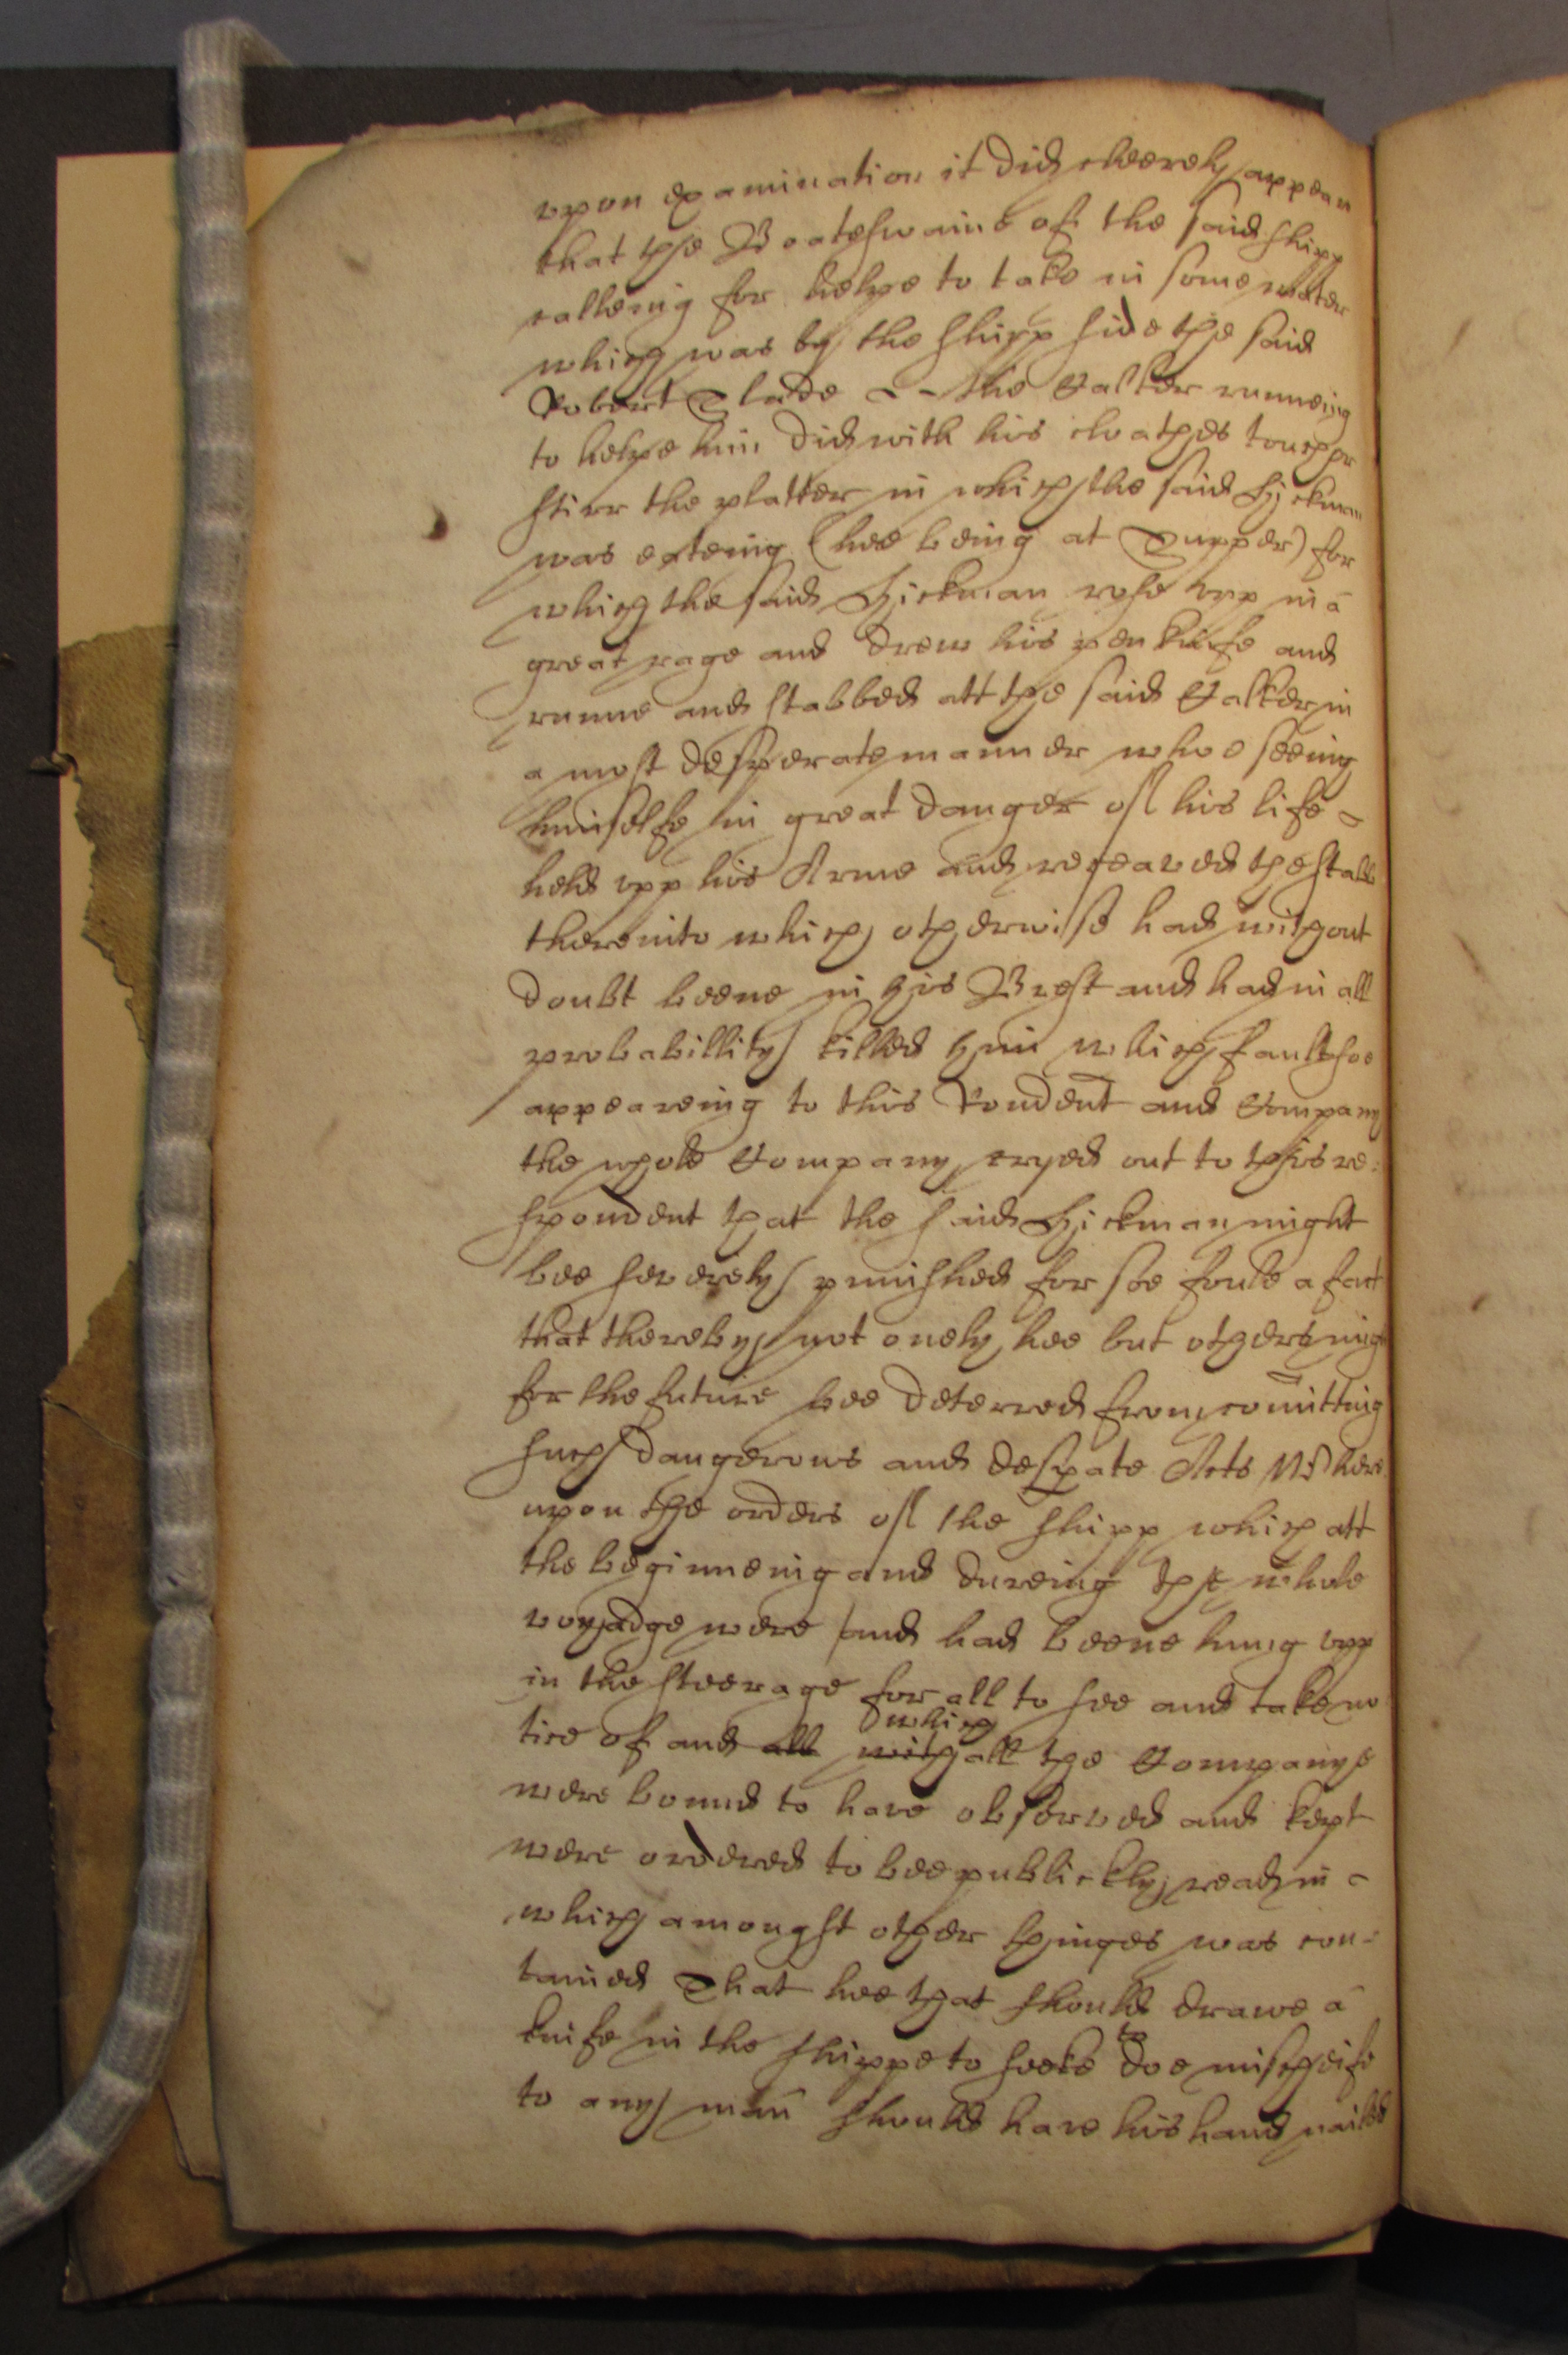 upon examination it did cleerely appear
that the Boateswaine of the said shipp
calleing for helpe to take in some water
which was by the shipp side the said
Robert Slade - - the Calker runneing
to helpe him did with his cloathes touch or
stirr the platter in which the said Hickman
was eateing (hee being at Supper) for
which the said Hickman rose upp in a
great rage and drew his penknife and
runne and stabbed att the said Calker in
a most desperate manner whoe seeing
himselfe in great danger of his life -
held upp his Arme and receaved the stabb
thereinto which otherwise had without
doubt beene in his Brest and had in all
probabillity killed him which fault soe
appeareing to this Rondent and Company
the whole Company cryed out to this re:
spondent that the said Hickman might
bee severely punished for soe foule a fact
that thereby not onely hee but others migh
for the future bee deterred from comitting
such dangerous and despate Acts Where
upon the orders of the shipp which att
the beginneing and dureing the whole
voyadge were and had beene hung upp
in the steerage for all to see and take no
tice of and all which
with all the Companye
were bound to have observed and kept
were ordered to bee publickly read in -
which amoungst other thinges was con-
tained That hee that should drawe a
knife in the shippe to seeke to doe mischeife
to any man should have his hand nailed